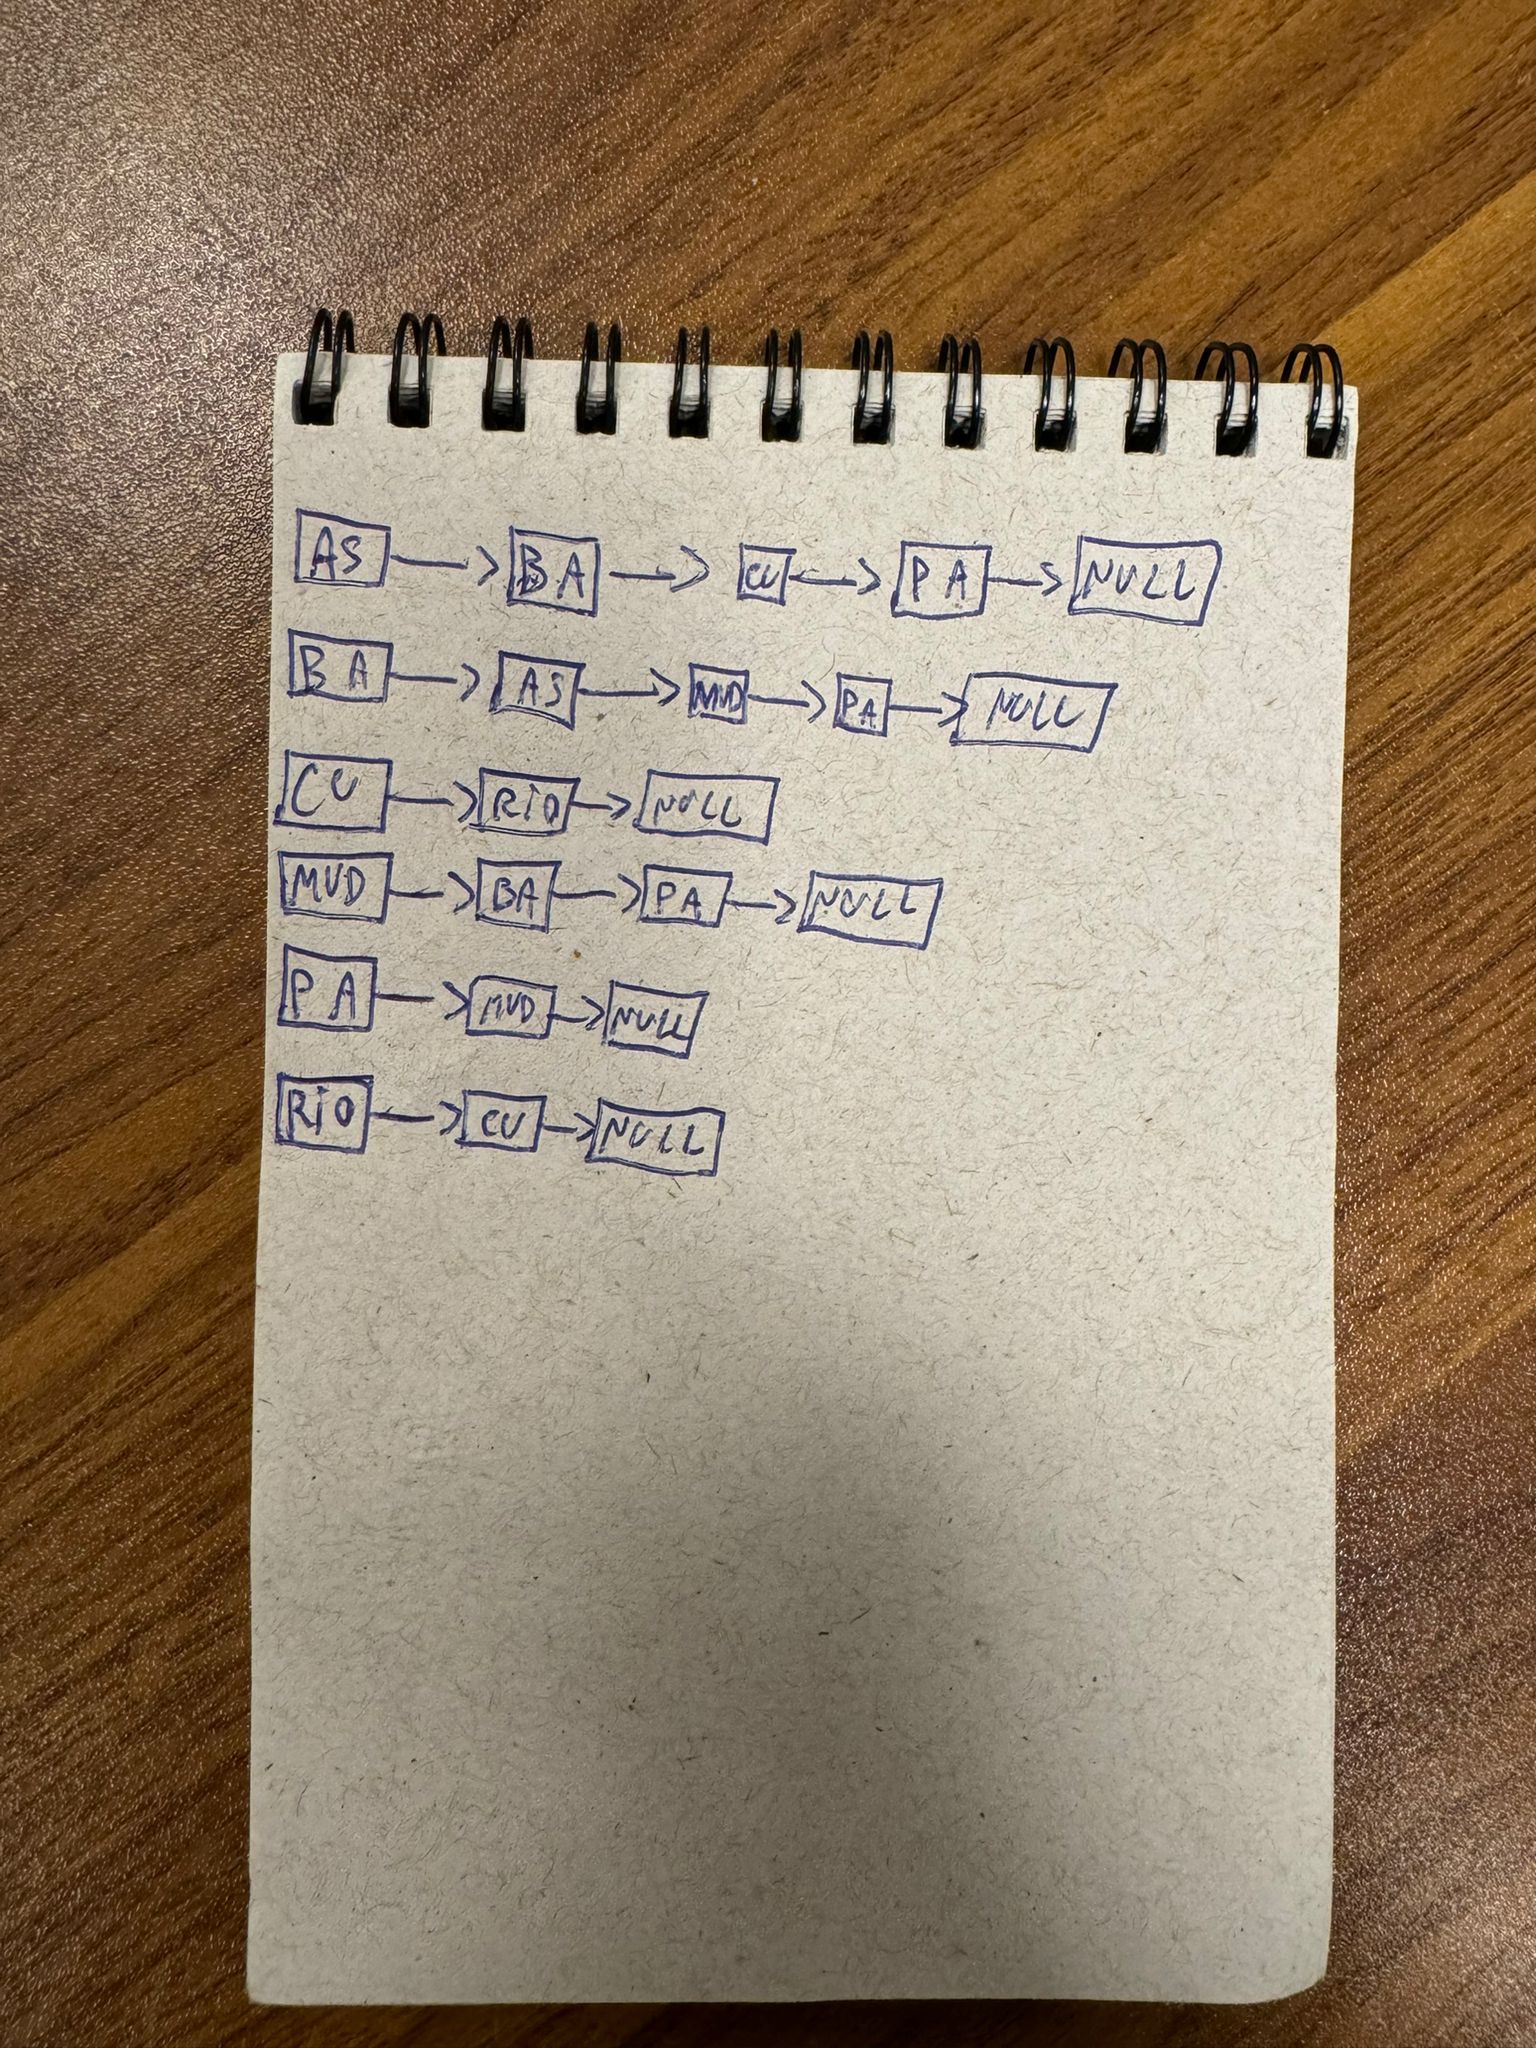 AS BA CU PA NULL
BA AS MVD PA NULL
CU RIO NULL
MVD BA PA NULL
PA MVD NULL
RIO CU NULL